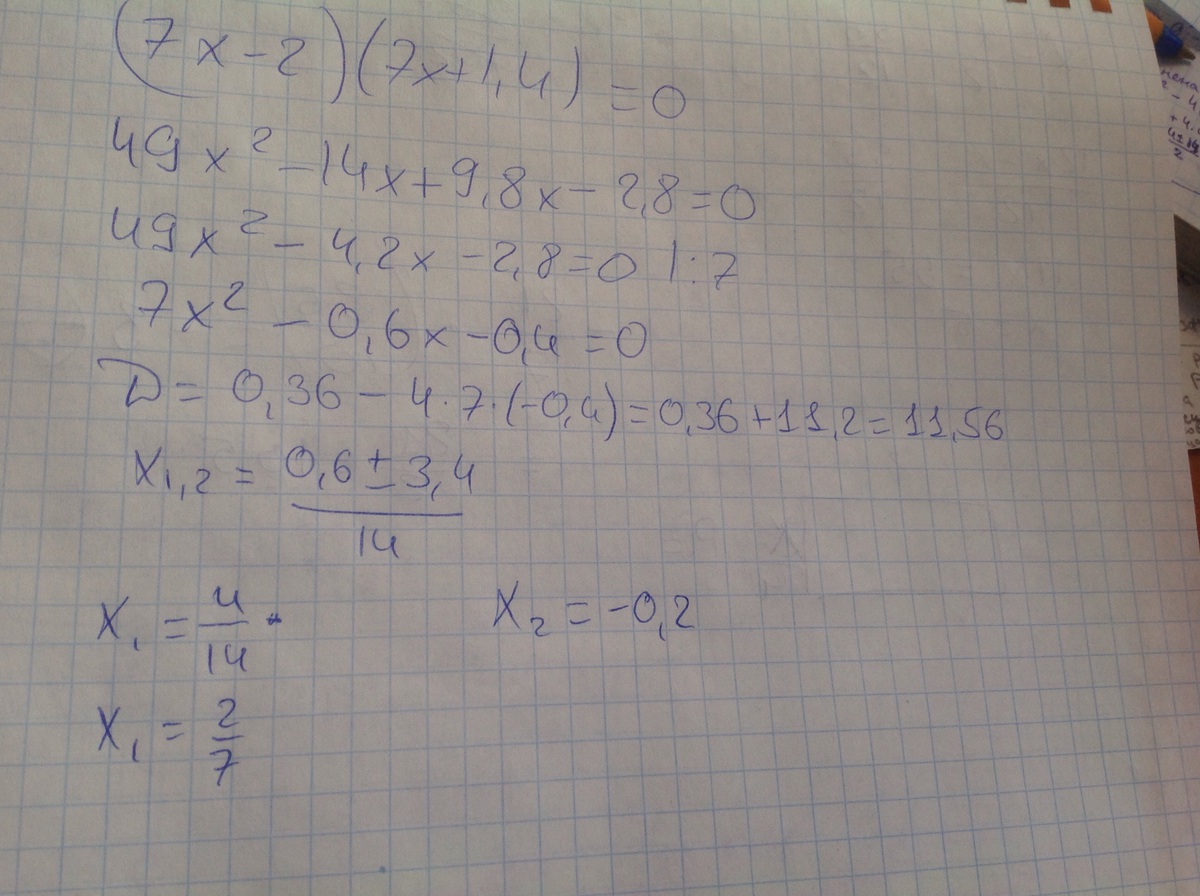 (7x-2)(7x+1,4)=0
49x²-14x+9,8x-2,8=0
49x²-4,2x-2,8=0 |:7
7x²-0,6x-0,4=0
D=0,36-4·7·(-0,4)=0,36+11,2=11,56
x₁,₂=(0,6±3,4)/14
x₁=4/14 x₂=-0,2
x₁=2/7